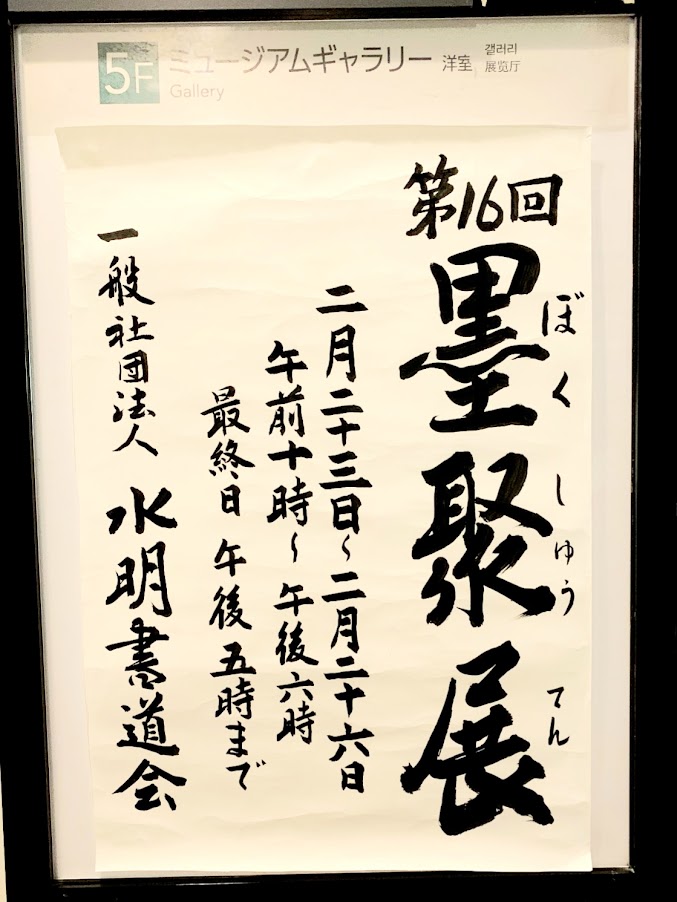 5F ミュージアムギャラリー 洋室 갤러리
Gallery 展览厅
第16回
墨聚展
ぼくしゅうてん
二月二十三日〜二月二十六日
午前十時〜午後六時
最終日 午後五時まで
一般社団法人 水明書道会